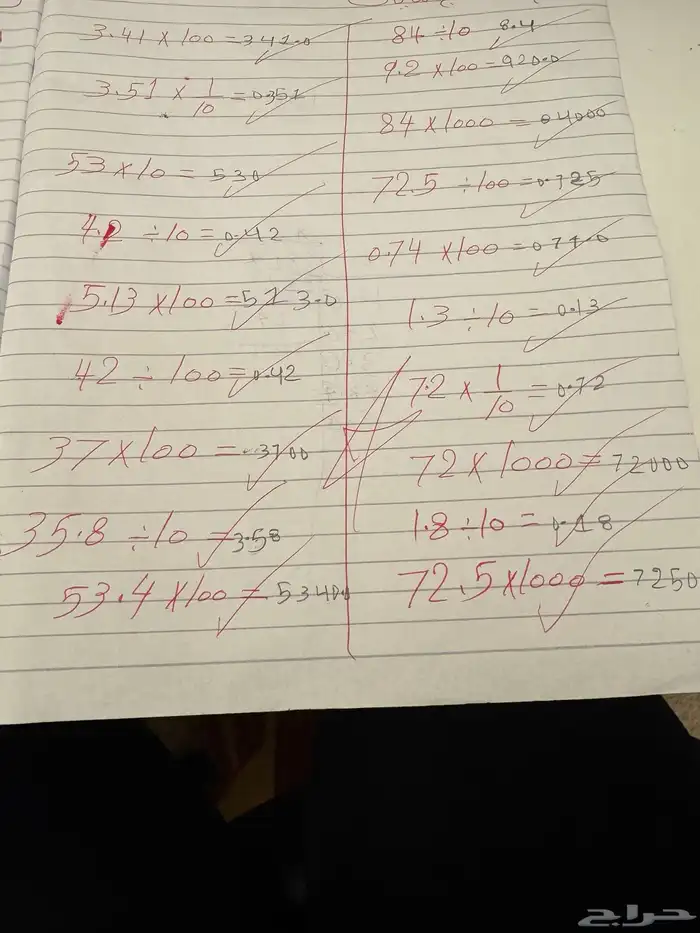 3.41 × 100 = 341.0
3.51 × 1/10 = 0.351
53 × 10 = 530
4.2 ÷ 10 = 0.42
5.13 × 100 = 513.0
42 ÷ 100 = 0.42
37 × 100 = 3700
35.8 ÷ 10 = 3.58
53.4 × 100 = 53400
84 ÷ 10 8.4
9.2 × 100 = 920.0
84 × 1000 = 84000
72.5 ÷ 100 = 0.725
0.74 × 100 = 0.740
1.3 ÷ 10 = 0.13
7.2 × 1/10 = 0.72
72 × 1000 = 72000
1.8 ÷ 10 = 0.18
72.5 × 1000 = 7250
حراج